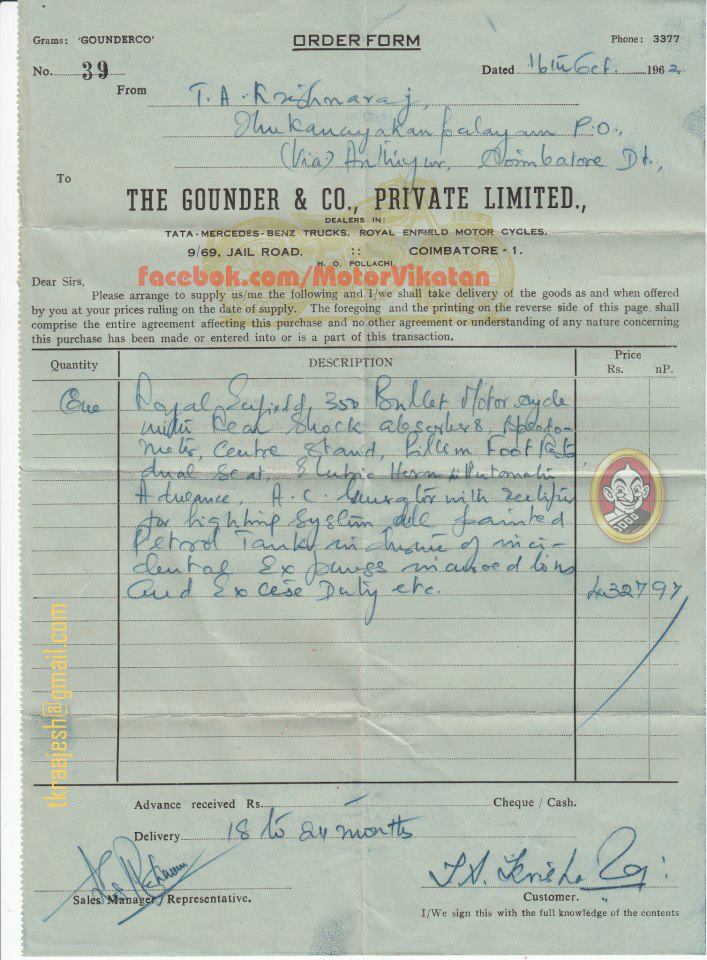 Grams: 'GOUNDERCO' ORDER FORM Phone: 3377
No. 39 Dated 16th Oct. 1962
From T. A. Krishnaraj,
P.O.,
(Via) Anthiyur, Coimbatore Dt.,
To
THE GOUNDER & CO., PRIVATE LIMITED.,
DEALERS IN:
TATA-MERCEDES-BENZ TRUCKS. ROYAL ENFIELD MOTOR CYCLES.
9/69, JAIL ROAD. :: COIMBATORE - 1.
H. O. POLLACHI
facebok.com/MotorVikatan
Dear Sirs,
Please arrange to supply us/me the following and I/we shall take delivery of the goods as and when offered
by you at your prices ruling on the date of supply. The foregoing and the printing on the reverse side of this page shall
comprise the entire agreement affecting this purchase and no other agreement or understanding of any nature concerning
this purchase has been made or entered into or is a part of this transaction.
Quantity DESCRIPTION Price
Rs. nP.
One Royal Enfield, 350 Bullet Motorcycle
with Rear Shock absorbers, Speedo-
meter, Centre Stand, Pillion Foot Rests
dual Seat, Electric Horn Automatic
Advance, A.C. Generator with Rectifier
for lighting System all painted
Petrol Tank, inclusive of inci-
dental Expenses
and Excise Duty etc. 4327 97
tkraajesh@gmail.com
Advance received Rs. Cheque / Cash.
Delivery 18 to 24 months
T.A. Krishna Raj
Sales Manager/Representative. Customer.
I/We sign this with the full knowledge of the contents